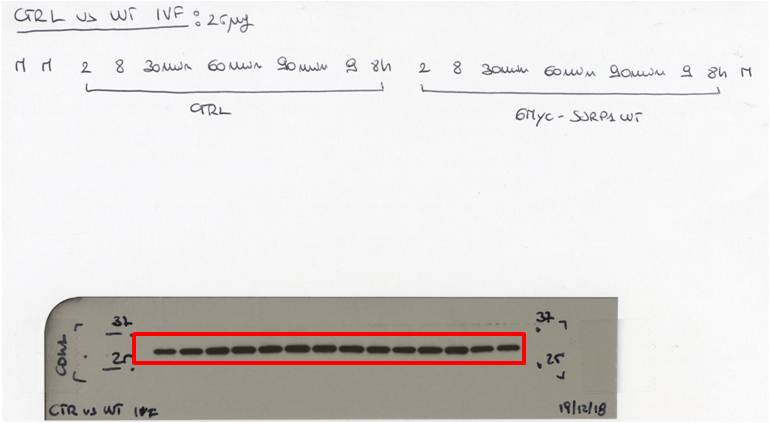 CTRL vs WT IVF : 25µg
M M 2 8 30min 60min 90min 9 8h 2 8 30min 60min 90min 9 8h M
CTRL 6Myc-
37 37
25 25
CTR vs WT IVF 19/12/18